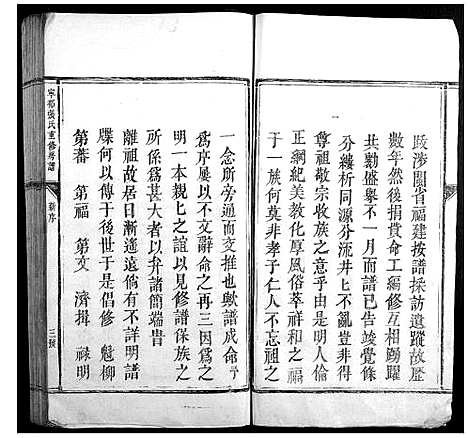 跋涉閩省福建按譜採訪遺蹤故歷
數年然後捐貲命工編修互相踴躍
共勷盛舉不一月而譜已告竣覺條
分縷析同源分流井上不亂豈非得
尊祖敬宗收族之意乎由是倫常以
正綱紀美教化厚風俗萃祥和之福
于一族何莫非孝子仁人不忘祖之
一念所旁通而交推也歟譜成命予
為序屢以不文辭命之再三因為之
明一本親上之誼以見修譜保族之
所係為甚大者以弁諸簡端昔
離祖故居日漸遙遠倘有不詳明譜
牒何以傳于後世于是合修 魁柳
第蕃 第福 第文 濟揖 祿明
寧都張氏重修房譜
新序
三號